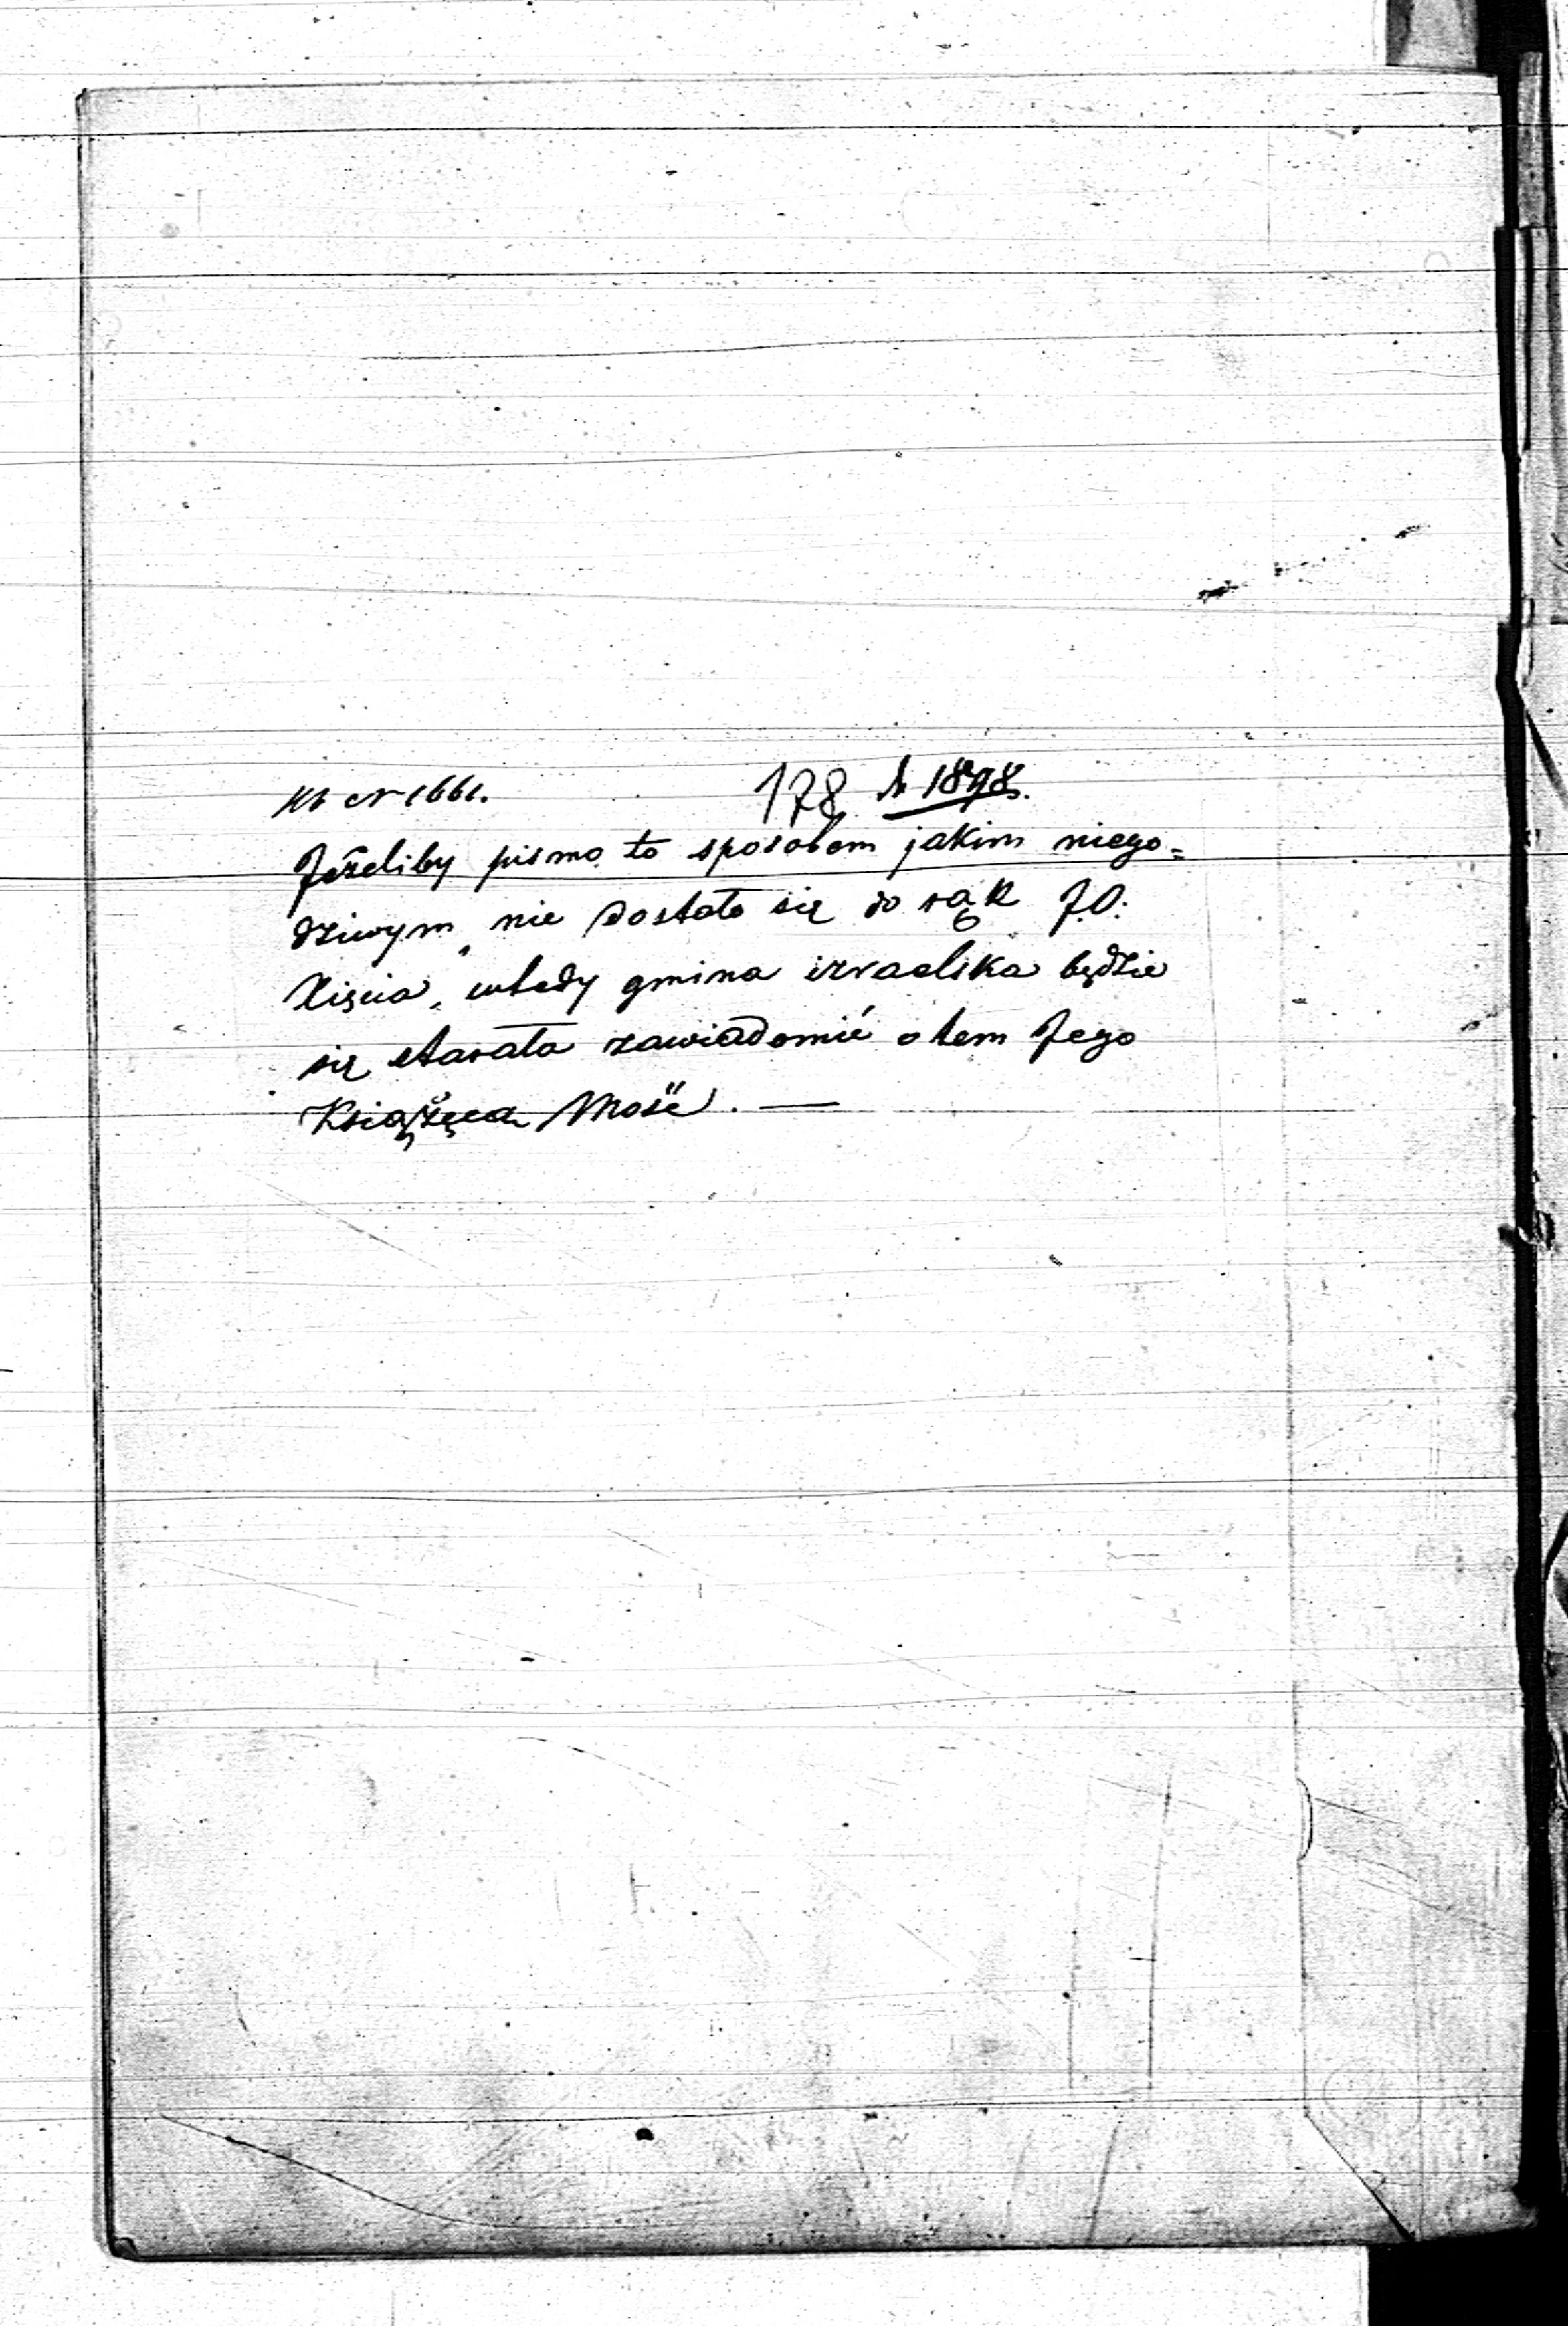 № 1661. 178 № 1898.
Jeżeliby pismo to sposobem jakim niego=
dziwym nie dostało się do rąk J.O.
Xięcia, wtedy gmina izraelska będzie
się starała zawiadomić o tem Jego
Książęcą Mość. —